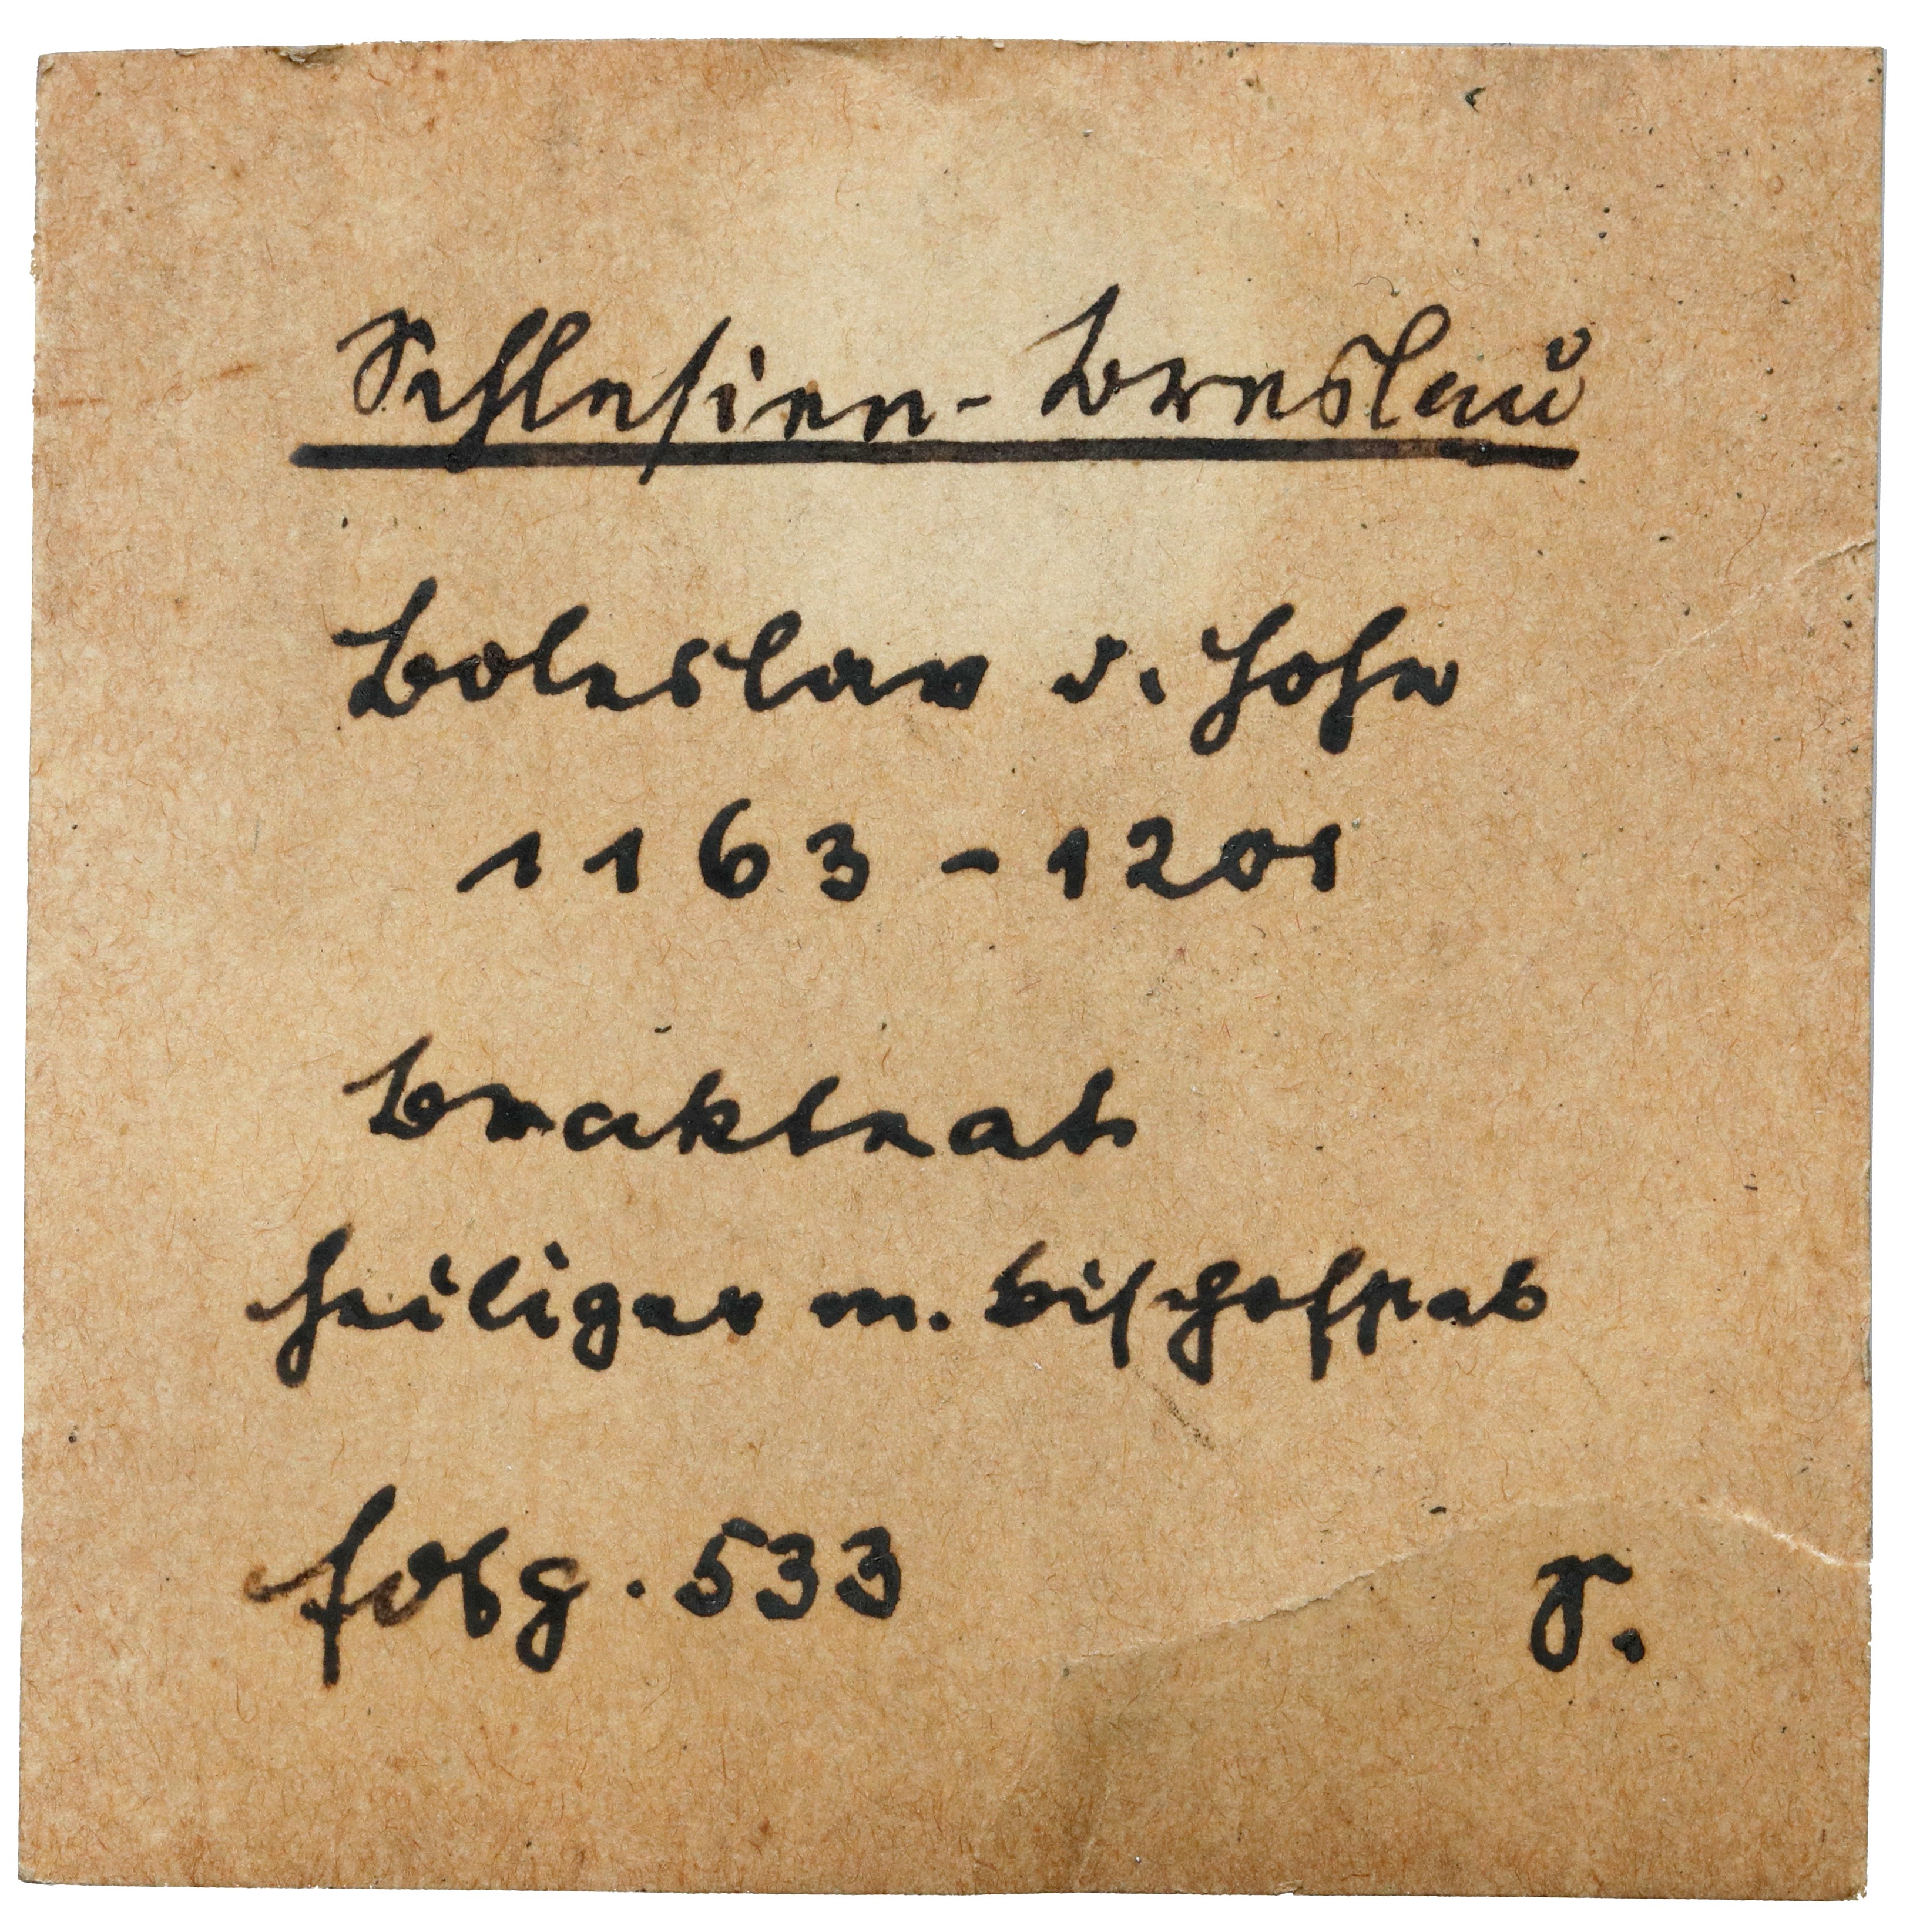 Schlesien - Breslau
Boleslav d. Hohe
1163 - 1201
Brakteat
Heiliger m. Bischofstab
Fbg. 533